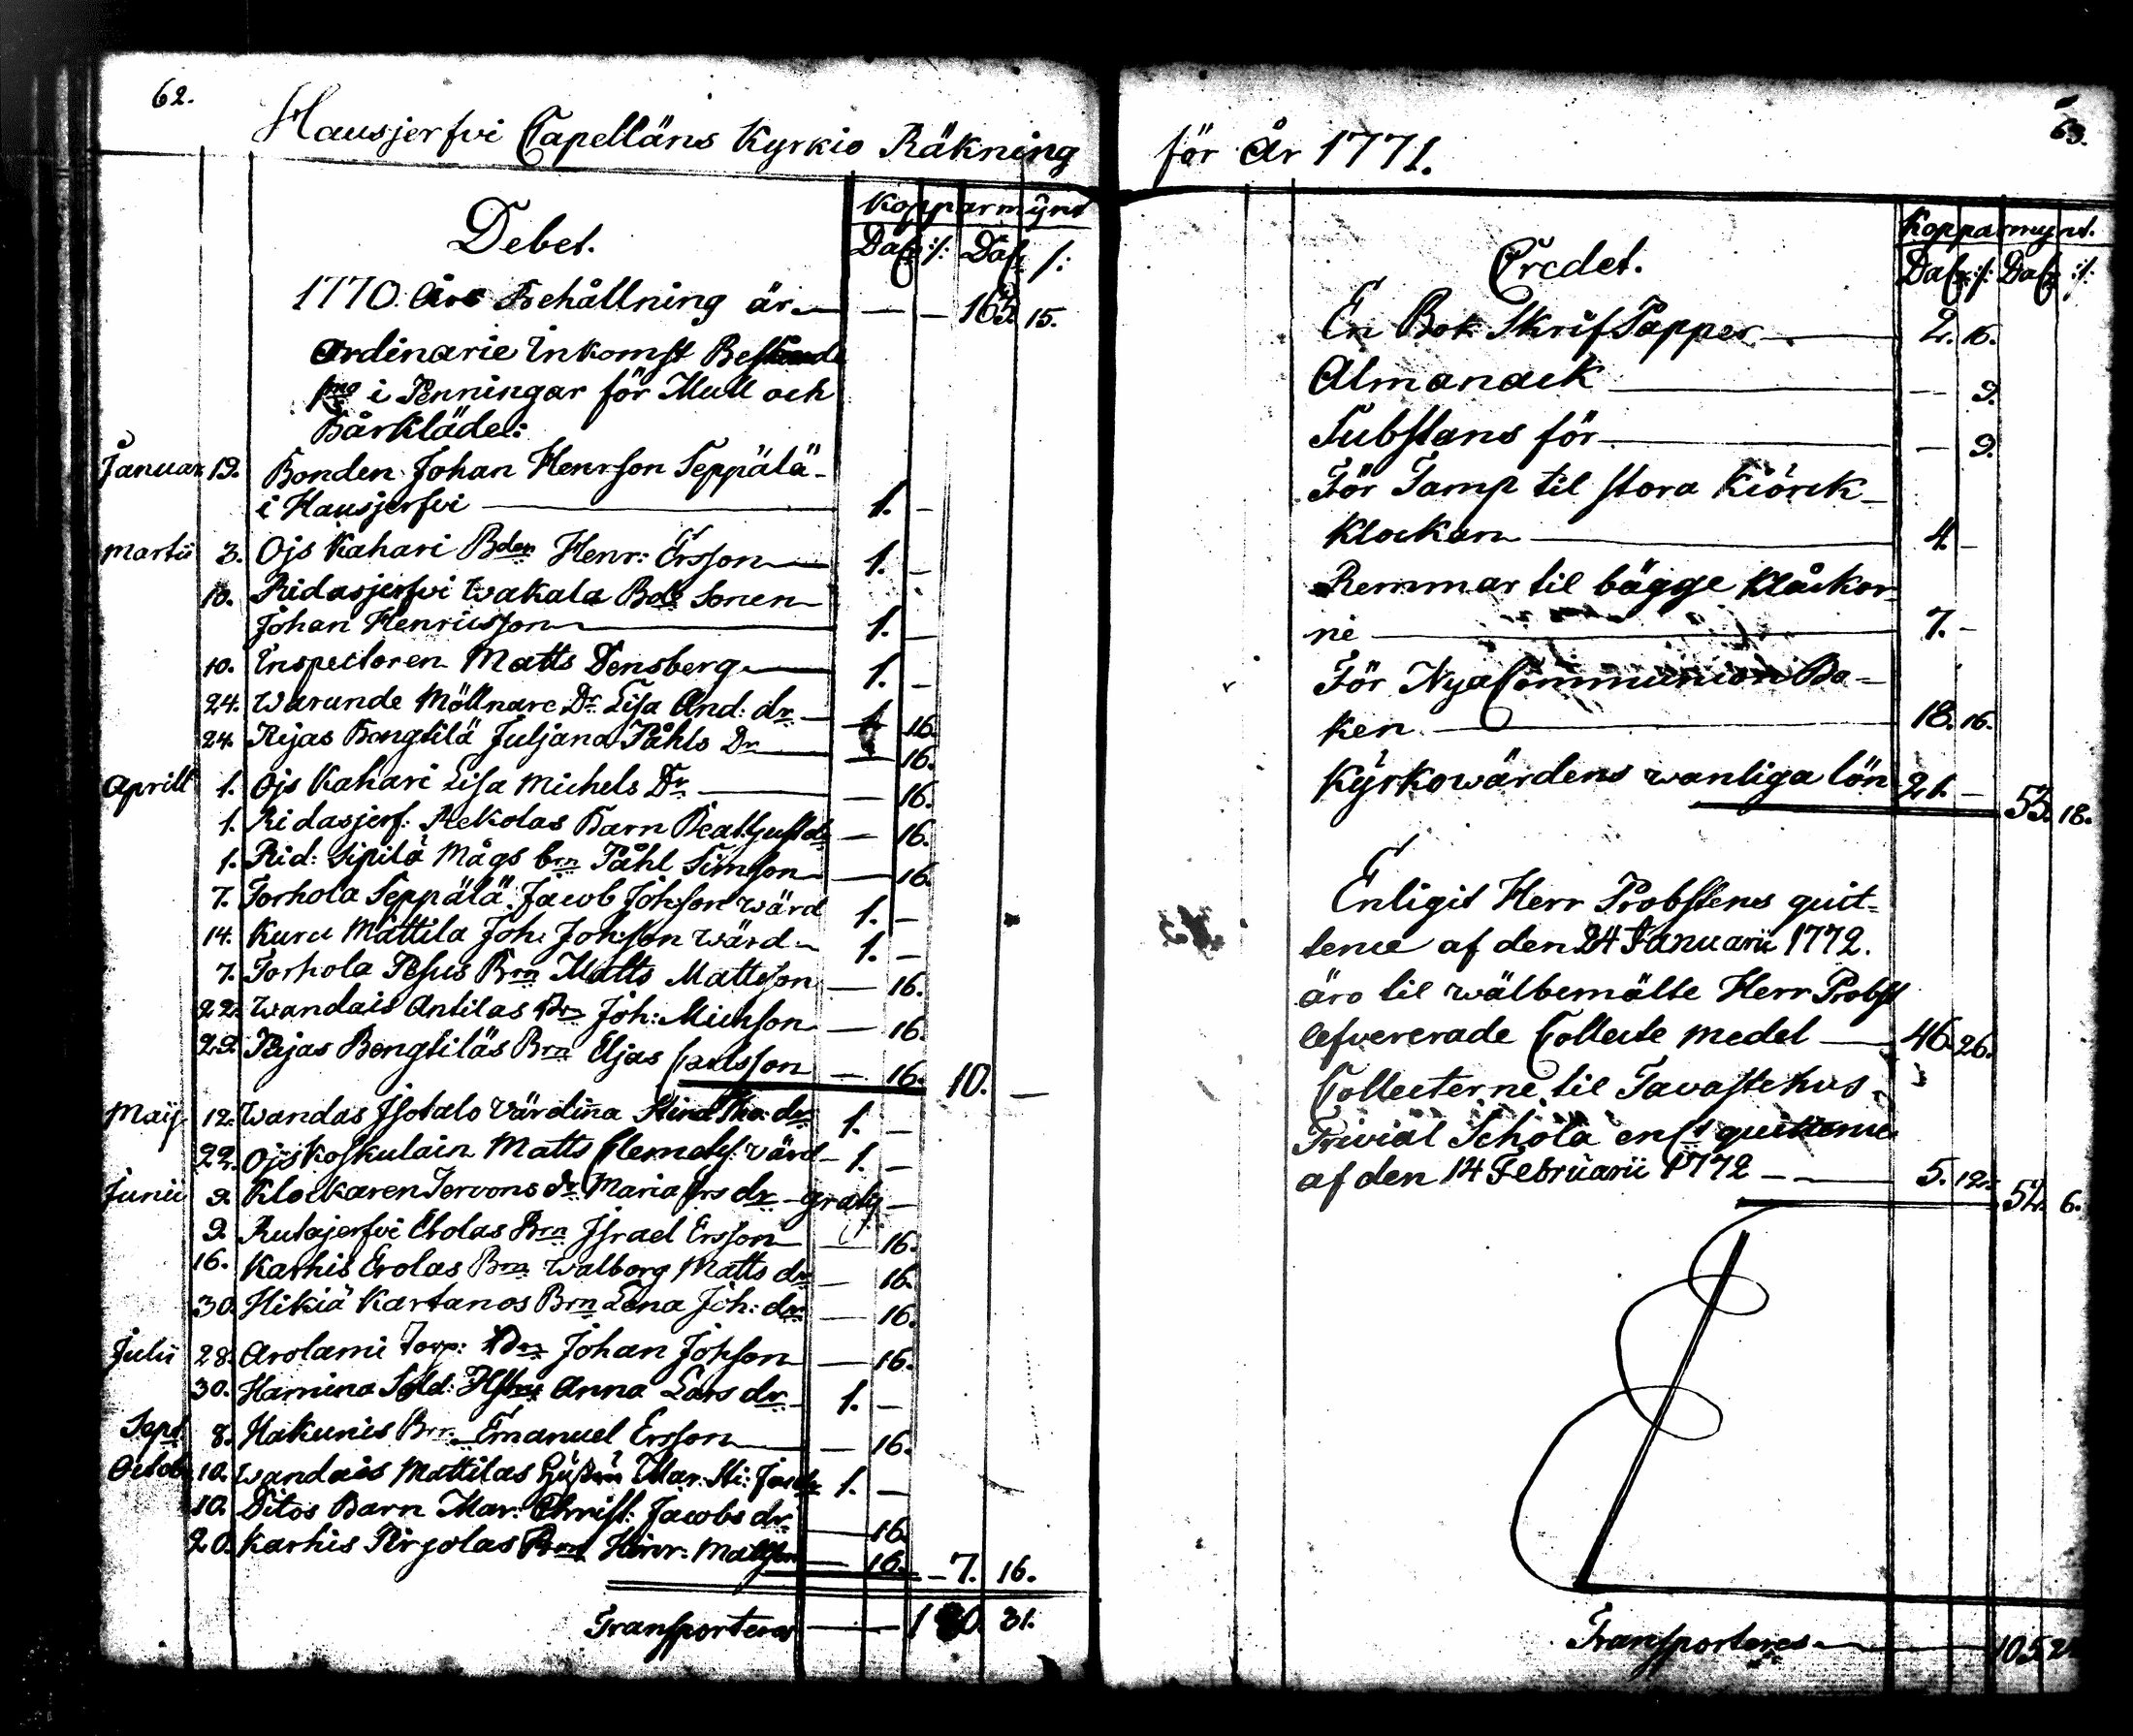 62.
Hausjerfvi Capelläns Kyrkio Räkning
Kopparmynt
Debet.
Dalr :/: Dalr /:
1770. Års Behållning är — — 163. 15.
Ordinarie Inkomst Bestående
i Penningar för Mull och
Bårkläde:
Januar. 19. Bonden Johan Henrson Seppälä
i Hausjerfvi — 1. —
Martii 3. Ojs Kahari Bden Henr: Ersson — 1. —
10. Ridasjerfvi Wakala Bde Sonen
Johan Henricsson — 1. —
10. Inspectoren Matts Densberg — 1. —
24. Warunde Möllnare Dr. Lisa And: dr — 16.
24. Rijas Bengtilä Juljana Påhls Dr — 16.
Aprill 1. Ojs Kahari Lisa Michels Dr. — 16.
1. Ridasjerf: Rekolas Barn Beat: Gust dr — 16.
1. Rid: Sipilä Mågs brn Påhl Simson — 16.
7. Torhola Seppälä Jacob Johson wärd 1. —
14. Kuru Mattila Joh: Johson wärd 1. —
7. Torhola Pesus Brn Matts Mattsson — 16.
22. Wandais Antilas Brn Joh: Michson — 16.
29. Rijas Bengtiläs Brn Eljas Carlsson — 16. 10. —
Maij. 12. Wandas Isotalo Värdina Stina Tho: dr 1. —
22. Ojs Koskulain Matts Clemets: värd 1. —
Junii 9. Klockaren Tervons dr Maria Ers dr gratis —
9. Rutajerfvi Erolas Brn Israel Ersson — 16.
16. Karhis Erolas Brn Walborg Matts dr — 16.
30. Hikiä Kartanos Brn Lena Joh: dr — 16.
Julii 28. Arolami Torp: Brn Johan Johson — 16.
30. Hamina Sold: Hstru Anna Lars dr 1. —
Sept. 8. Hakunis Brn Emanuel Ersson — 16.
Octob. 10. Wandais Mattilas Mar: Jac dr 1. —
10. Ditos Barn Mar: Christ: Jacobs dr — 16.
20. Karhis Pirjolas Brn Henr: Mattson — 16. — 7. 16.
Transporteras — 31.
63.
för År 1771.
Kopparmynt.
Credet.
Dalr :/: Dalr :/:
En Bok Skrif Papper — 2. 16.
Almanack — 9.
Substans för — 9.
För Tamp til stora Kiörck-
klockan — 4. —
Remmar til bägge Klåckor-
ne — 7. —
För Nya Communion Bo-
ken — 18. 16.
Kyrkowärdens wanliga lön 21. — 53. 18.
Enligit Herr Probstens quit-
tence af den 24 Januarii 1772.
äro til wälbemälte Herr Probst
lefvererade Collecte medel — 46. 26.
Collecterne til Tavastehus
Trivial Schola enl: quittence
af den 14 Februarii 1772 — 5. 12. 52. 6.
Transporteres — 105. 24